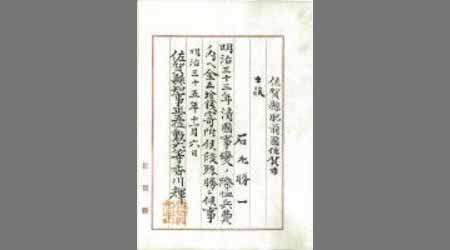 佐賀縣肥前國佐賀市
士族
石丸勝一
明治三十三年清國事變ノ際恤兵費
内ヘ金五拾錢寄附候段殊勝ニ候事
明治三十五年十二月六日
佐賀縣知事正五位勲六等香川輝
佐賀縣